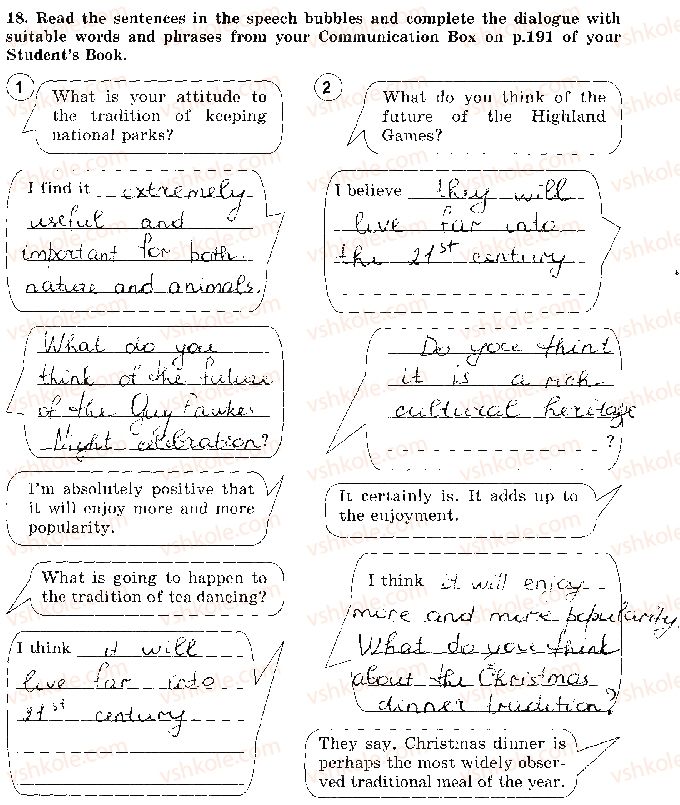 18. Read the sentences in the speech bubbles and complete the dialogue with
suitable words and phrases from your Communication Box on p.191 of your
Student's Book.
1
What is your attitude to
the tradition of keeping
national parks?
I find it extremely
useful and
important for both
nature and animals.
What do you
think of the future
of the Guy Fawkes
Night celebration?
I'm absolutely positive that
it will enjoy more and more
popularity.
What is going to happen to
the tradition of tea dancing?
I think it will
live far into
21st century
2
What do you think of the
future of the Highland
Games?
I believe they will
live far into
the 21st century
Do you think
it is a rich
cultural heritage
?
It certainly is. It adds up to
the enjoyment.
I think it will enjoy
more and more popularity.
What do you think
about the Christmas
dinner tradition?
They say, Christmas dinner is
perhaps the most widely obser-
ved traditional meal of the year.
vshkole.com